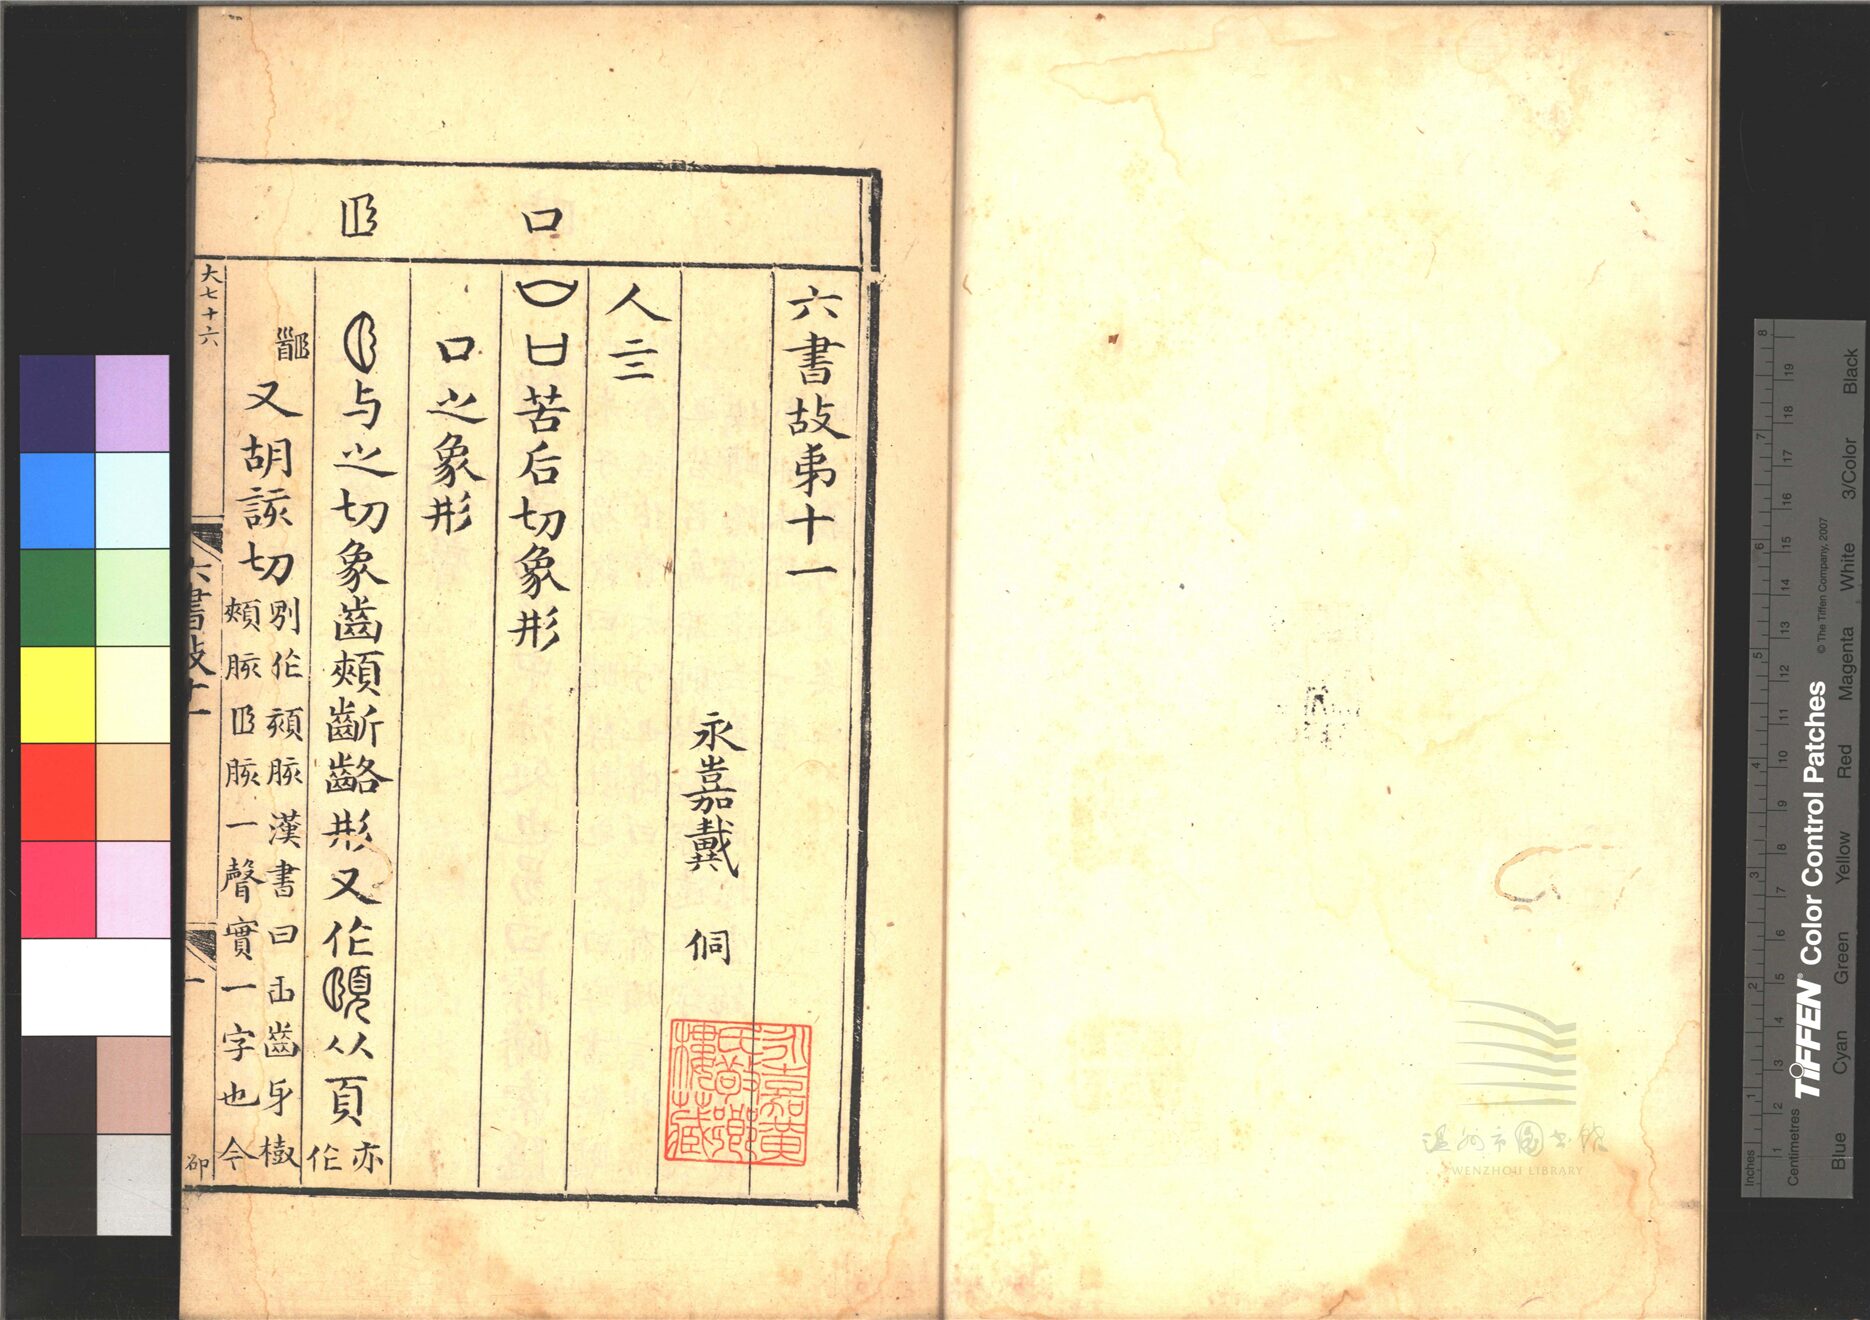 口
𦣞
六書故弟十一
永嘉戴 侗
人三
口之象形
苦后切象形
与之切象齒頰齗䶅形又作
从頁
亦
作
又胡𧧻切
漢書曰
頰
一聲實一字也今
大七十六
六書故十一
一
永嘉黃
氏敬鄉
樓藏
溫州市图书馆
WENZHOU LIBRARY
TIFFEN® Color Control Patches
© The Tiffen Company, 2007
Inches
Centimetres
Blue
Cyan
Green
Yellow
Red
Magenta
White
3/Color
Black